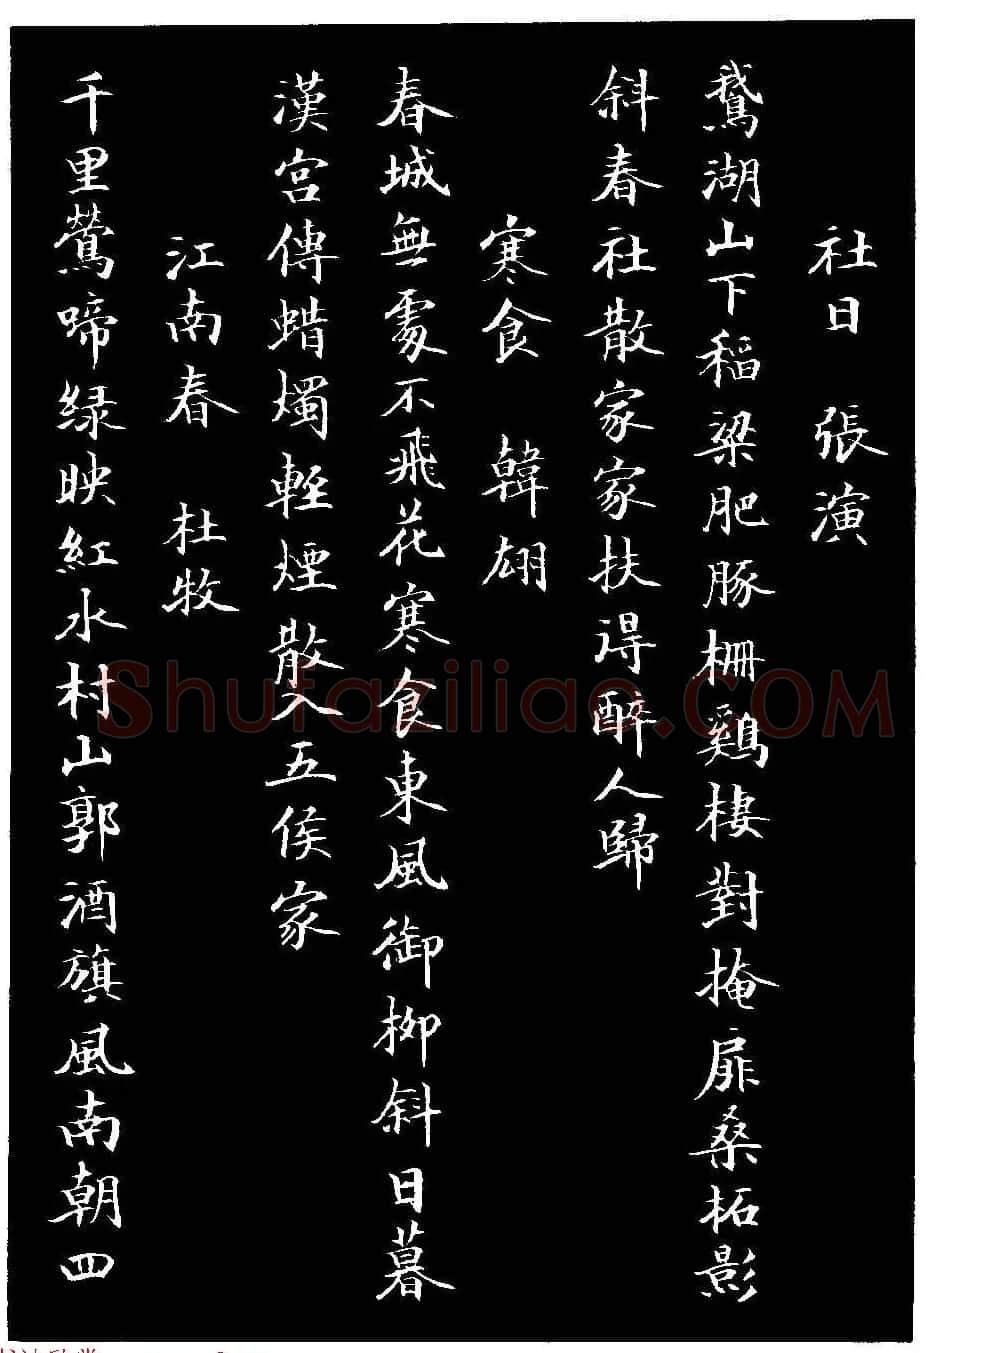 社日　張演
鵝湖山下稻梁肥豚柵鷄棲對掩扉桑柘影
斜春社散家家扶得醉人歸
寒食　韓翃
春城無處不飛花寒食東風御柳斜日暮
漢宫傳蜡燭輕煙散入五侯家
江南春　杜牧
千里鶯啼緑映紅水村山郭酒旗風南朝四
Shufaziliao.COM